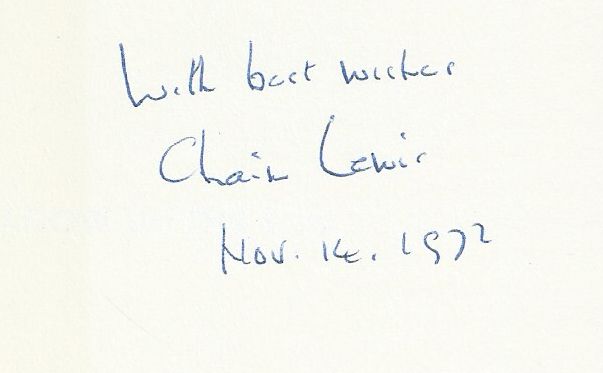 With best wishes
Chaim Lewis
Nov. 14. 1972